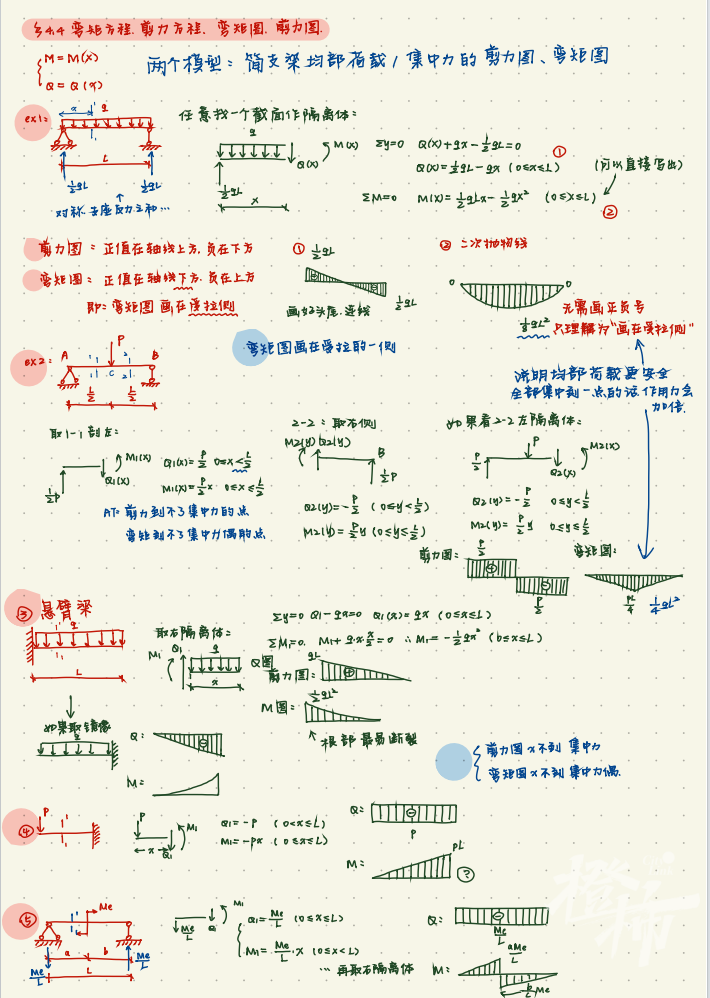 §4.4 弯矩方程. 剪力方程. 弯矩图. 剪力图.
M = M(x)
Q = Q(x)
两个模型: 简支梁均部荷载 / 集中力的 剪力图、弯矩图
ex1:
x
q
L
½qL
½qL
对称, 支座反力之和…
任意找一个截面作隔离体:
q
M(x)
Q(x)
½qL
x
Σy=0 Q(x)+qx-½qL=0
Q(x)=½qL-qx (0≤x≤L) ①
(可以直接写出)
ΣM=0 M(x)=½qLx-½qx² (0≤x≤L) ②
剪力图: 正值在轴线上方, 负在下方
弯矩图: 正值在轴线下方. 负在上方
即: 弯矩图画在受拉侧
① ½qL
½qL
画好头尾. 连线
② 二次抛物线
0 0
⅛qL²
无需画正负号
只理解为"画在受拉侧"
弯矩图画在受拉的一侧
ex2:
A P B
1 2
1 C 2
L/2 L/2
说明均部荷载更安全
全部集中到一点的话作用力会
加倍.
取1-1剖左:
M1(x)
Q1(x)
½P
Q1(x)=P/2 0≤x<L/2
M1(x)=P/2x 0≤x≤L/2
AT: 剪力到不了集中力的点
弯矩到不了集中力偶的点
2-2: 取右侧
M2(y) Q2(y)
B
½P
Q2(y)=-P/2 (0≤y<L/2)
M2(y)=P/2y (0≤y≤L/2)
如果看2-2左隔离体:
P
P/2
M2(x)
Q2(x)
Q2(y)=-P/2 0≤y<L/2
M2(y)=P/2y 0≤y≤L/2
剪力图: P/2
⊕
⊖
P/2
弯矩图:
PL/4 ¼qL²
③ 悬臂梁
q
L
取右隔离体:
M1 Q1 q
x
Σy=0 Q1-qx=0 Q1(x)=qx (0≤x≤L)
ΣM1=0. M1+q·x·x/2=0 ∴M1=-½qx² (0≤x≤L)
Q图
剪力图: qL
⊕
M图: ½qL²
根部最易断裂
如果取镜像
q
Q:
⊖
M=
剪力图x不到 集中力
弯矩图x不到 集中力偶.
④ P
1
1
P M1
x Q1
Q1=-P (0<x≤L)
M1=-Px (0≤x≤L)
Q=
⊖
P
M= PL
?
⑤ Me
1
1
a b
L
Me/L Me/L
M1
Me/L Q
Q1=Me/L (0≤x≤L)
M1=Me/L·x (0≤x<L)
… 再取右隔离体
Q:
⊖
Me/L
M= aMe/L
b/L Me
橙子柚